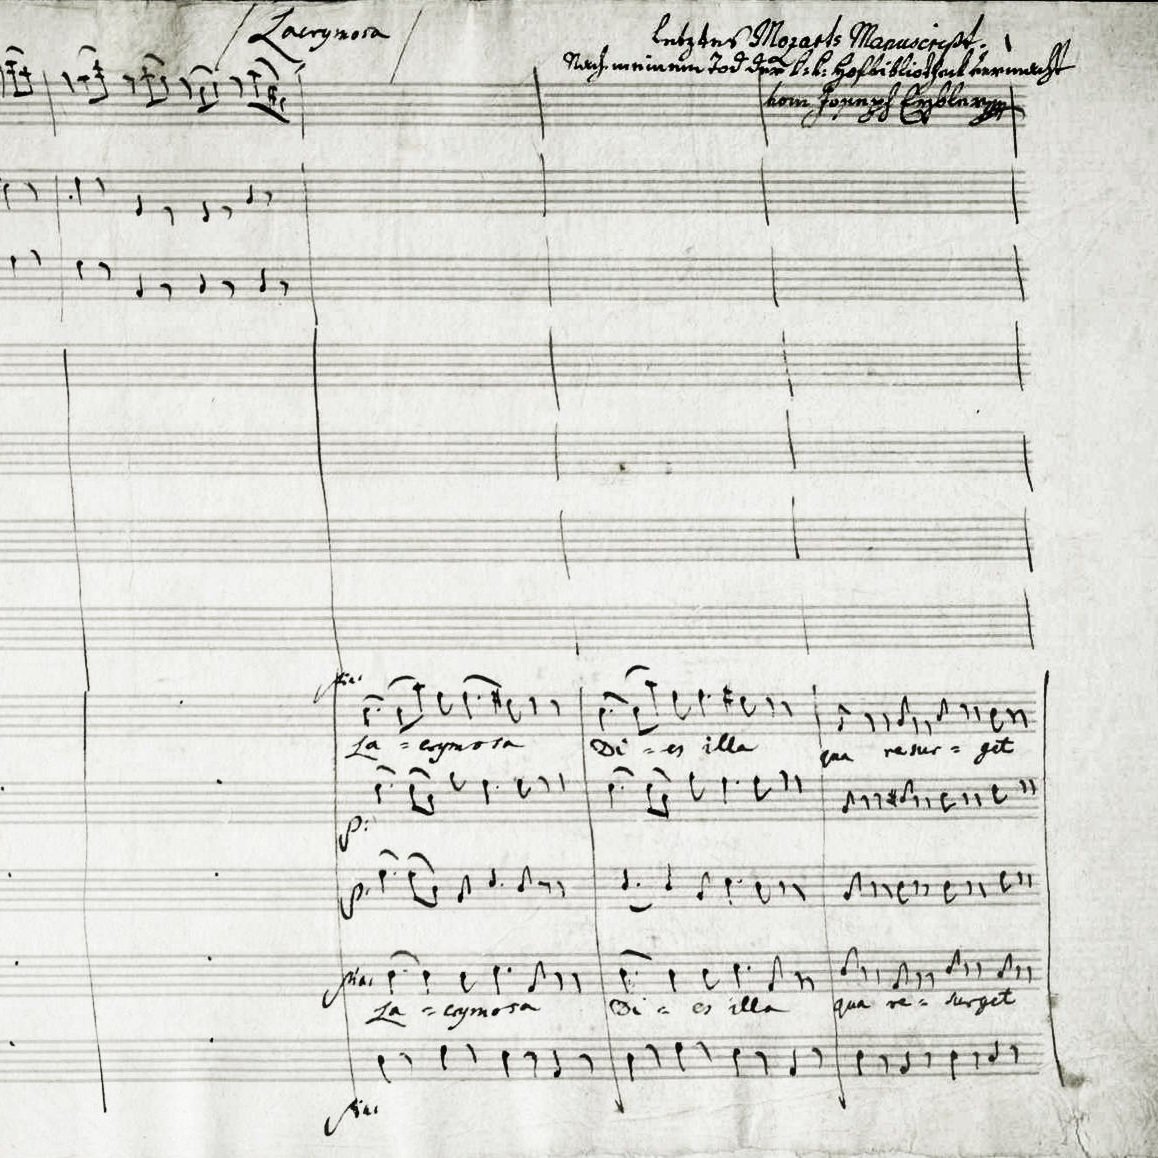 Lacrymosa
letztes Mozarts Manuscript.
Nach meinem Tod der k: k: Hofbibliothek vermacht
vom Joseph Eybler
pia:
La = crymosa Di = es illa qua resur = get
p:
p:
pia:
La = crymosa Di = es illa qua re = surget
pia: